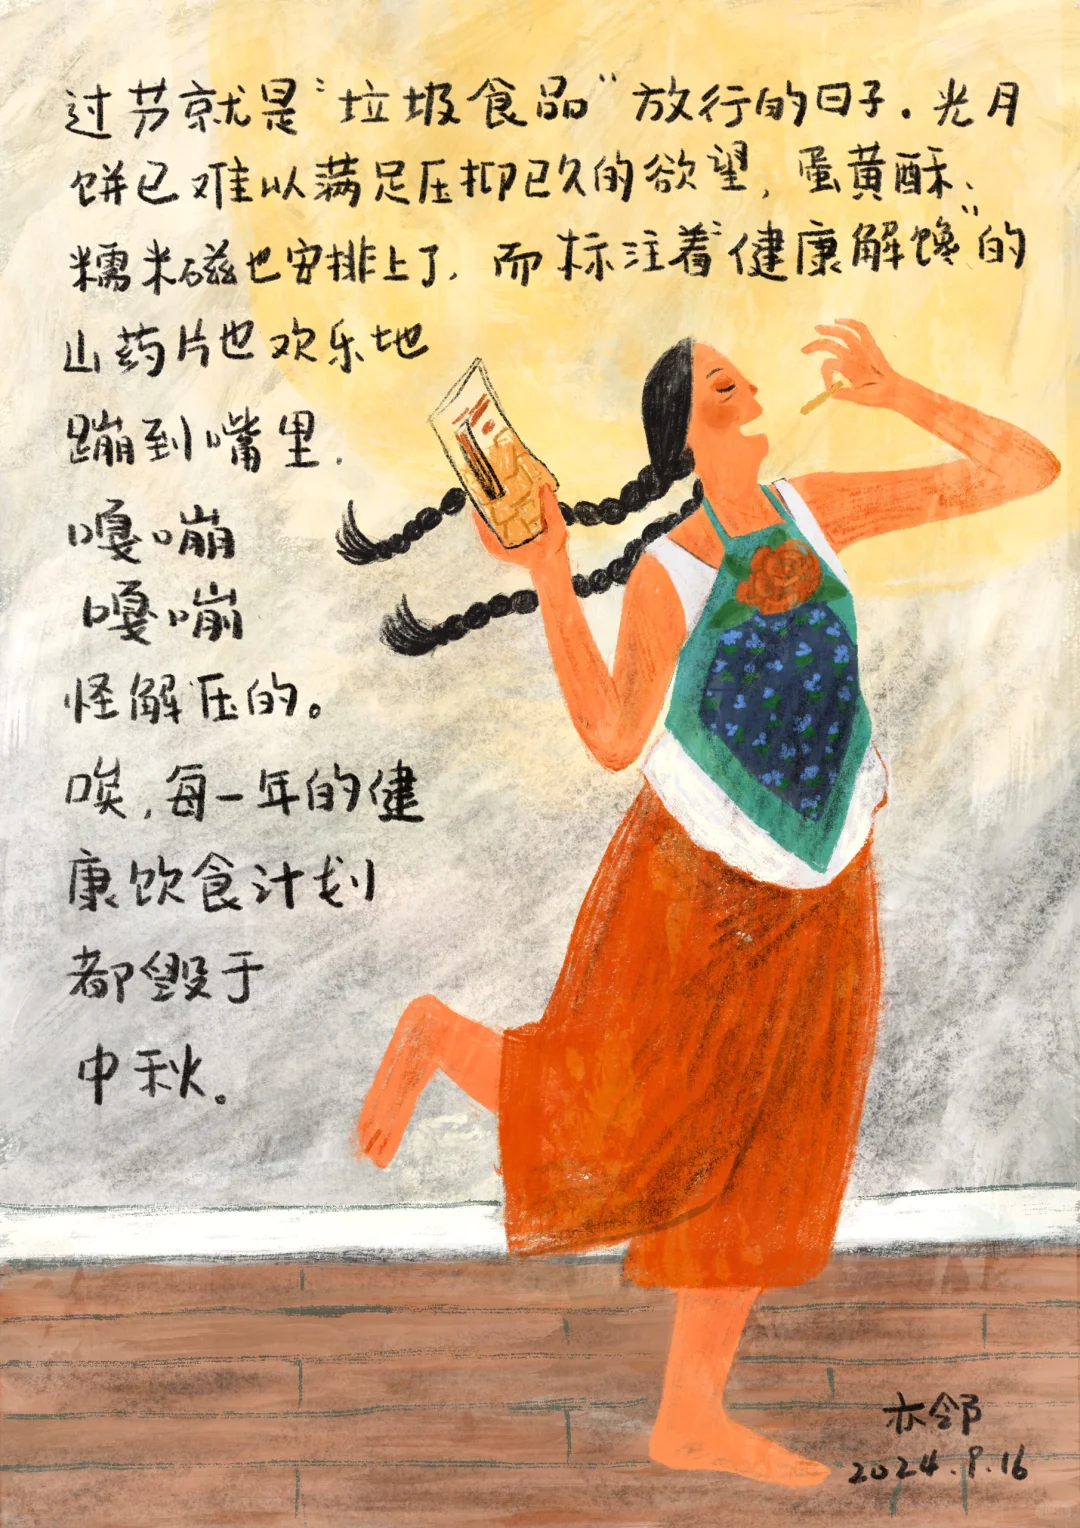 过节就是“垃圾食品”放行的日子.光月
饼已难以满足压抑已久的欲望,蛋黄酥、
糯米磁也安排上了,而标注着“健康解馋”的
山药片也欢乐地
蹦到嘴里.
嘎嘣
嘎嘣
怪解压的。
唉,每一年的健
康饮食计划
都毁于
中秋。
亦邻
2024.9.16